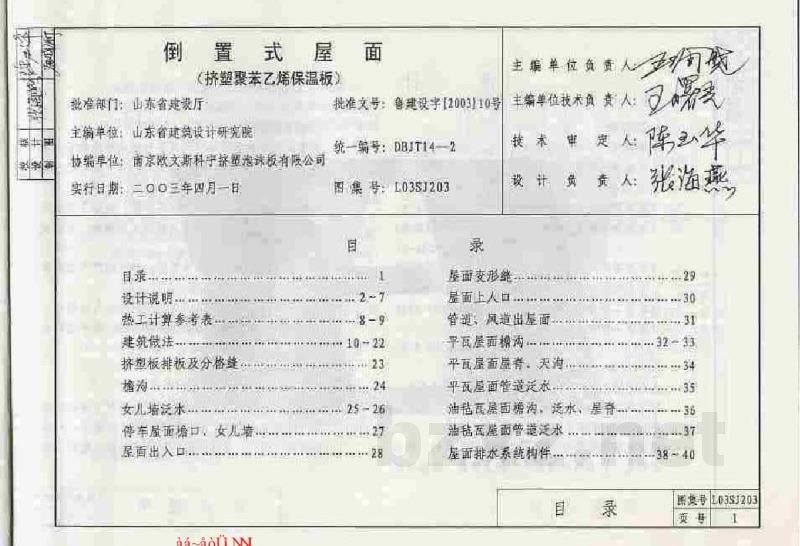 倒置式屋面
（挤塑聚苯乙烯保温板）
批准部门：山东省建设厅
批准文号：鲁建设字[2003]10号
主编单位：山东省建筑设计研究院
统一编号：DBJT14—2
协编单位：南京欧文斯科宁挤塑泡沫板有限公司
实行日期：二〇〇三年四月一日
图集号：L03SJ203
主编单位负责人：
主编单位技术负责人：王曙光
技术审定人：陈玉华
设计负责人：张海燕
校核
设计
制图
目录
目录 1
设计说明 2-7
热工计算参考表 8-9
建筑做法 10-22
挤塑板排板及分格缝 23
檐沟 24
女儿墙泛水 25-26
停车屋面檐口、女儿墙 27
屋面出入口 28
屋面变形缝 29
屋面上人口 30
管道、风道出屋面 31
平瓦屋面檐沟 32-33
平瓦屋面屋脊、天沟 34
平瓦屋面管道泛水 35
油毡瓦屋面檐沟、泛水、屋脊 36
油毡瓦屋面管道泛水 37
屋面排水系统构件 38-40
bzxz.net
目录
图集号 L03SJ203
页号 1